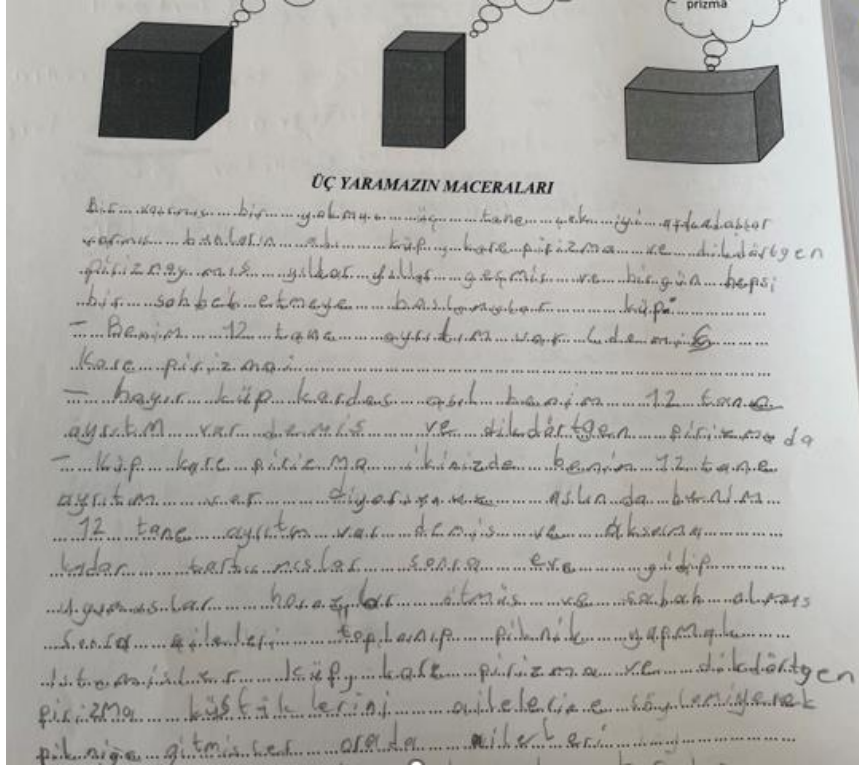 prizma
ÜÇ YARAMAZIN MACERALARI
Bir varmış bir yokmuş üç tane çok iyi arkadaşlar
varmış bunların adı küp, kare pirizma ve dikdörtgen
pirizmaymış yıllar yıllar geçmiş ve birgün hepsi
bir sohbet etmeye başlamışlar küp:
— Benim 12 tane ayrıtım var demiş
Kare pirizmai
— hayır küp kardeş asıl benim 12 tane
ayrıtım var demiş ve dikdörtgen pirizma da
— Küp kare pirizma ikinizde benim 12 tane
ayrıtım var diyorsunuz aslında benim
12 tane ayrıtm var demiş ve akşama
kadar tartışmışlar sonra eve gidip
uyumuşlar horozlar ötmüş ve sabah olmuş
Sonra aileleri toplanıp piknik yapmak
istemişler Küp, kare pirizma ve dikdörtgen
pirizma küstüklerini ailelerine söylemiyerek
pikniğe gitmişler orada